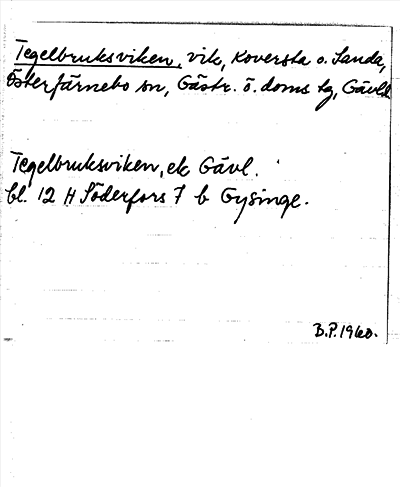 Tegelbruksviken, vik, Koversta o. Sanda,
Österfärnebo sn, Gästr. ö. doms tg, Gävlb.
Tegelbruksviken, ek Gävl.
bl. 12 H Söderfors 7 b Gysinge.
B.P. 1960.